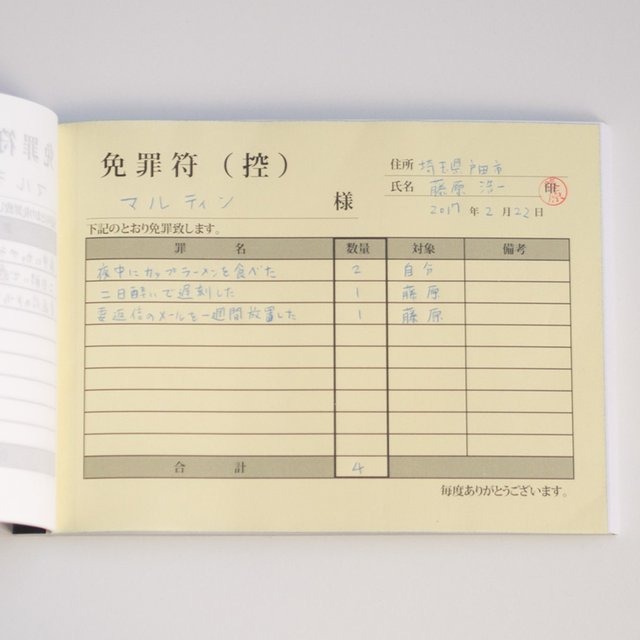 免罪符（控）
住所 埼玉県戸田市
氏名 藤原浩一 印
マルティン 様
2017年2月22日
下記のとおり免罪致します。
罪名 数量 対象 備考
夜中にカップラーメンを食べた 2 自分
二日酔いで遅刻した 1 藤原
要返信のメールを一週間放置した 1 藤原
合計 4
毎度ありがとうございます。